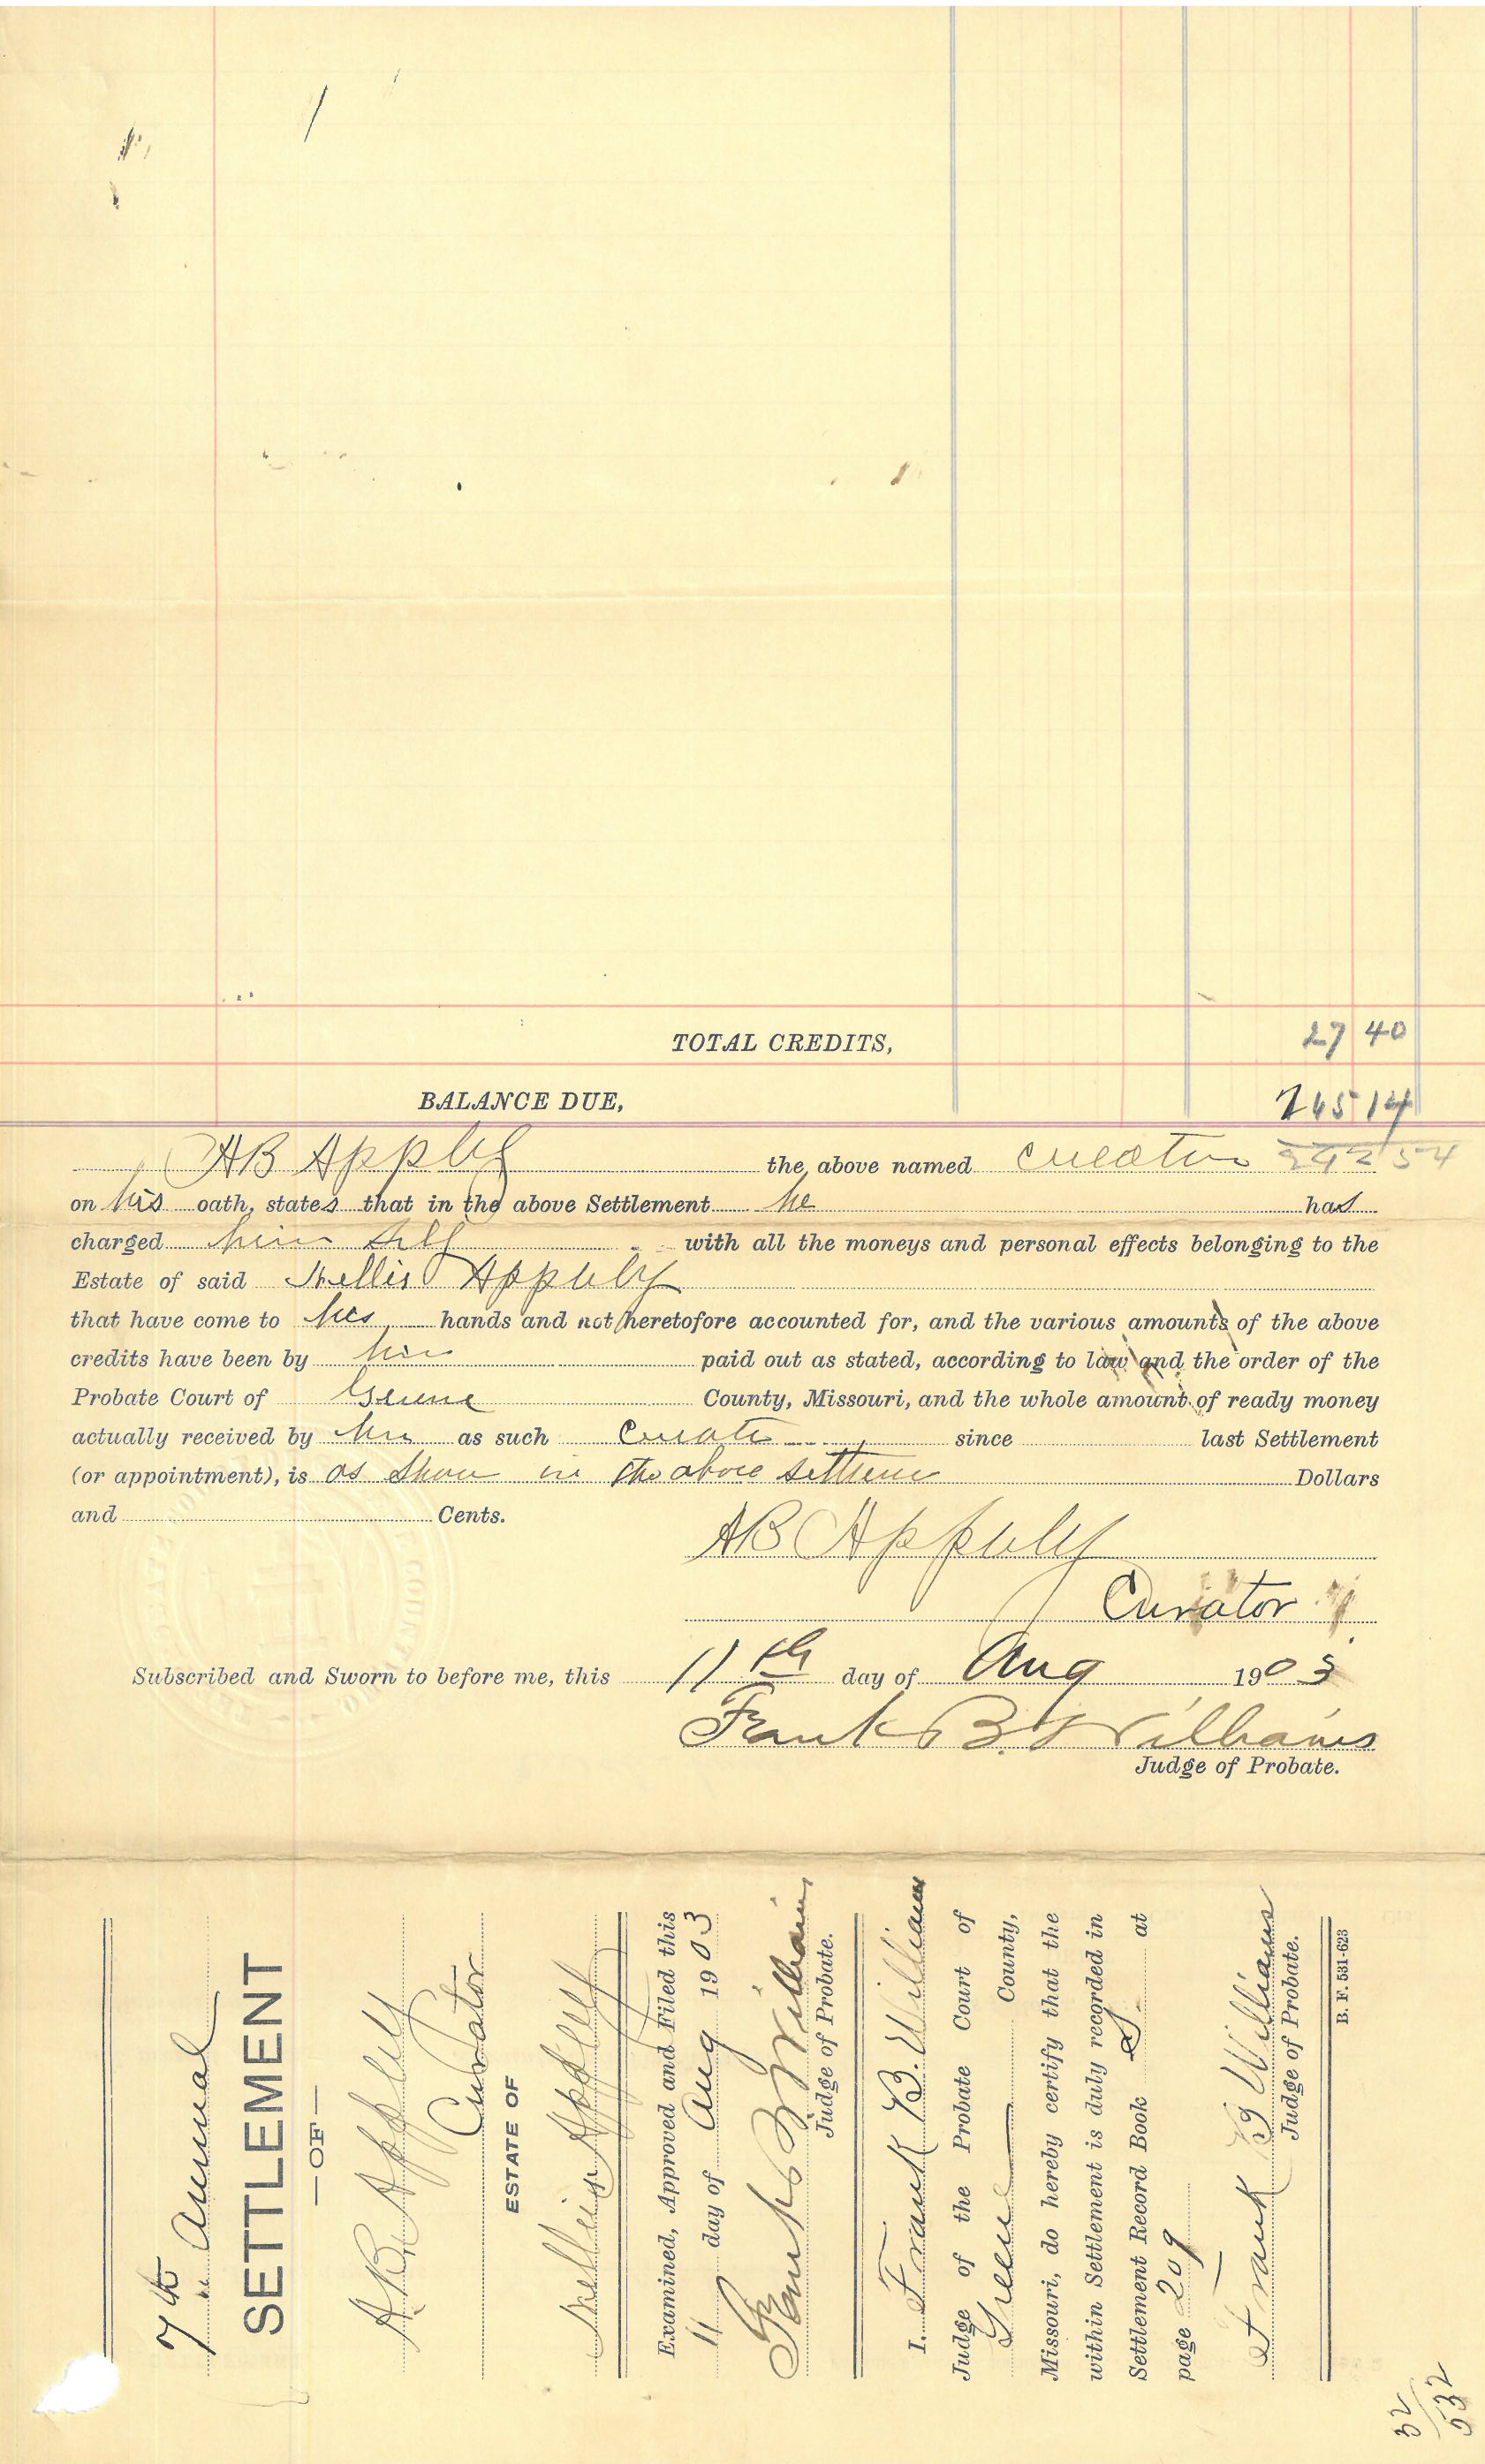 TOTAL CREDITS, 27 40
BALANCE DUE, 265 14
AB Appleby the above named curator 292 54
on his oath, states that in the above Settlement he has
charged him self with all the moneys and personal effects belonging to the
Estate of said Nellis Appleby
that have come to his hands and not heretofore accounted for, and the various amounts of the above
credits have been by him paid out as stated, according to law and the order of the
Probate Court of Greene County, Missouri, and the whole amount of ready money
actually received by him as such Curator since last Settlement
(or appointment), is as shown in the above settlement Dollars
and Cents.
AB Appleby
Curator
Subscribed and Sworn to before me, this 11th day of Aug 1903
Frank B. Williams
Judge of Probate.
7th Annual
SETTLEMENT
—OF—
A.B. Appleby
Curator
ESTATE OF
Nellis Appleby
Examined, Approved and Filed this
11 day of Aug 1903
Frank B Williams
Judge of Probate.
I. Frank B. Williams
Judge of the Probate Court of
Greene County,
Missouri, do hereby certify that the
within Settlement is duly recorded in
Settlement Record Book at
page 209
Frank B Williams
Judge of Probate.
B. F. 531-623
32/532